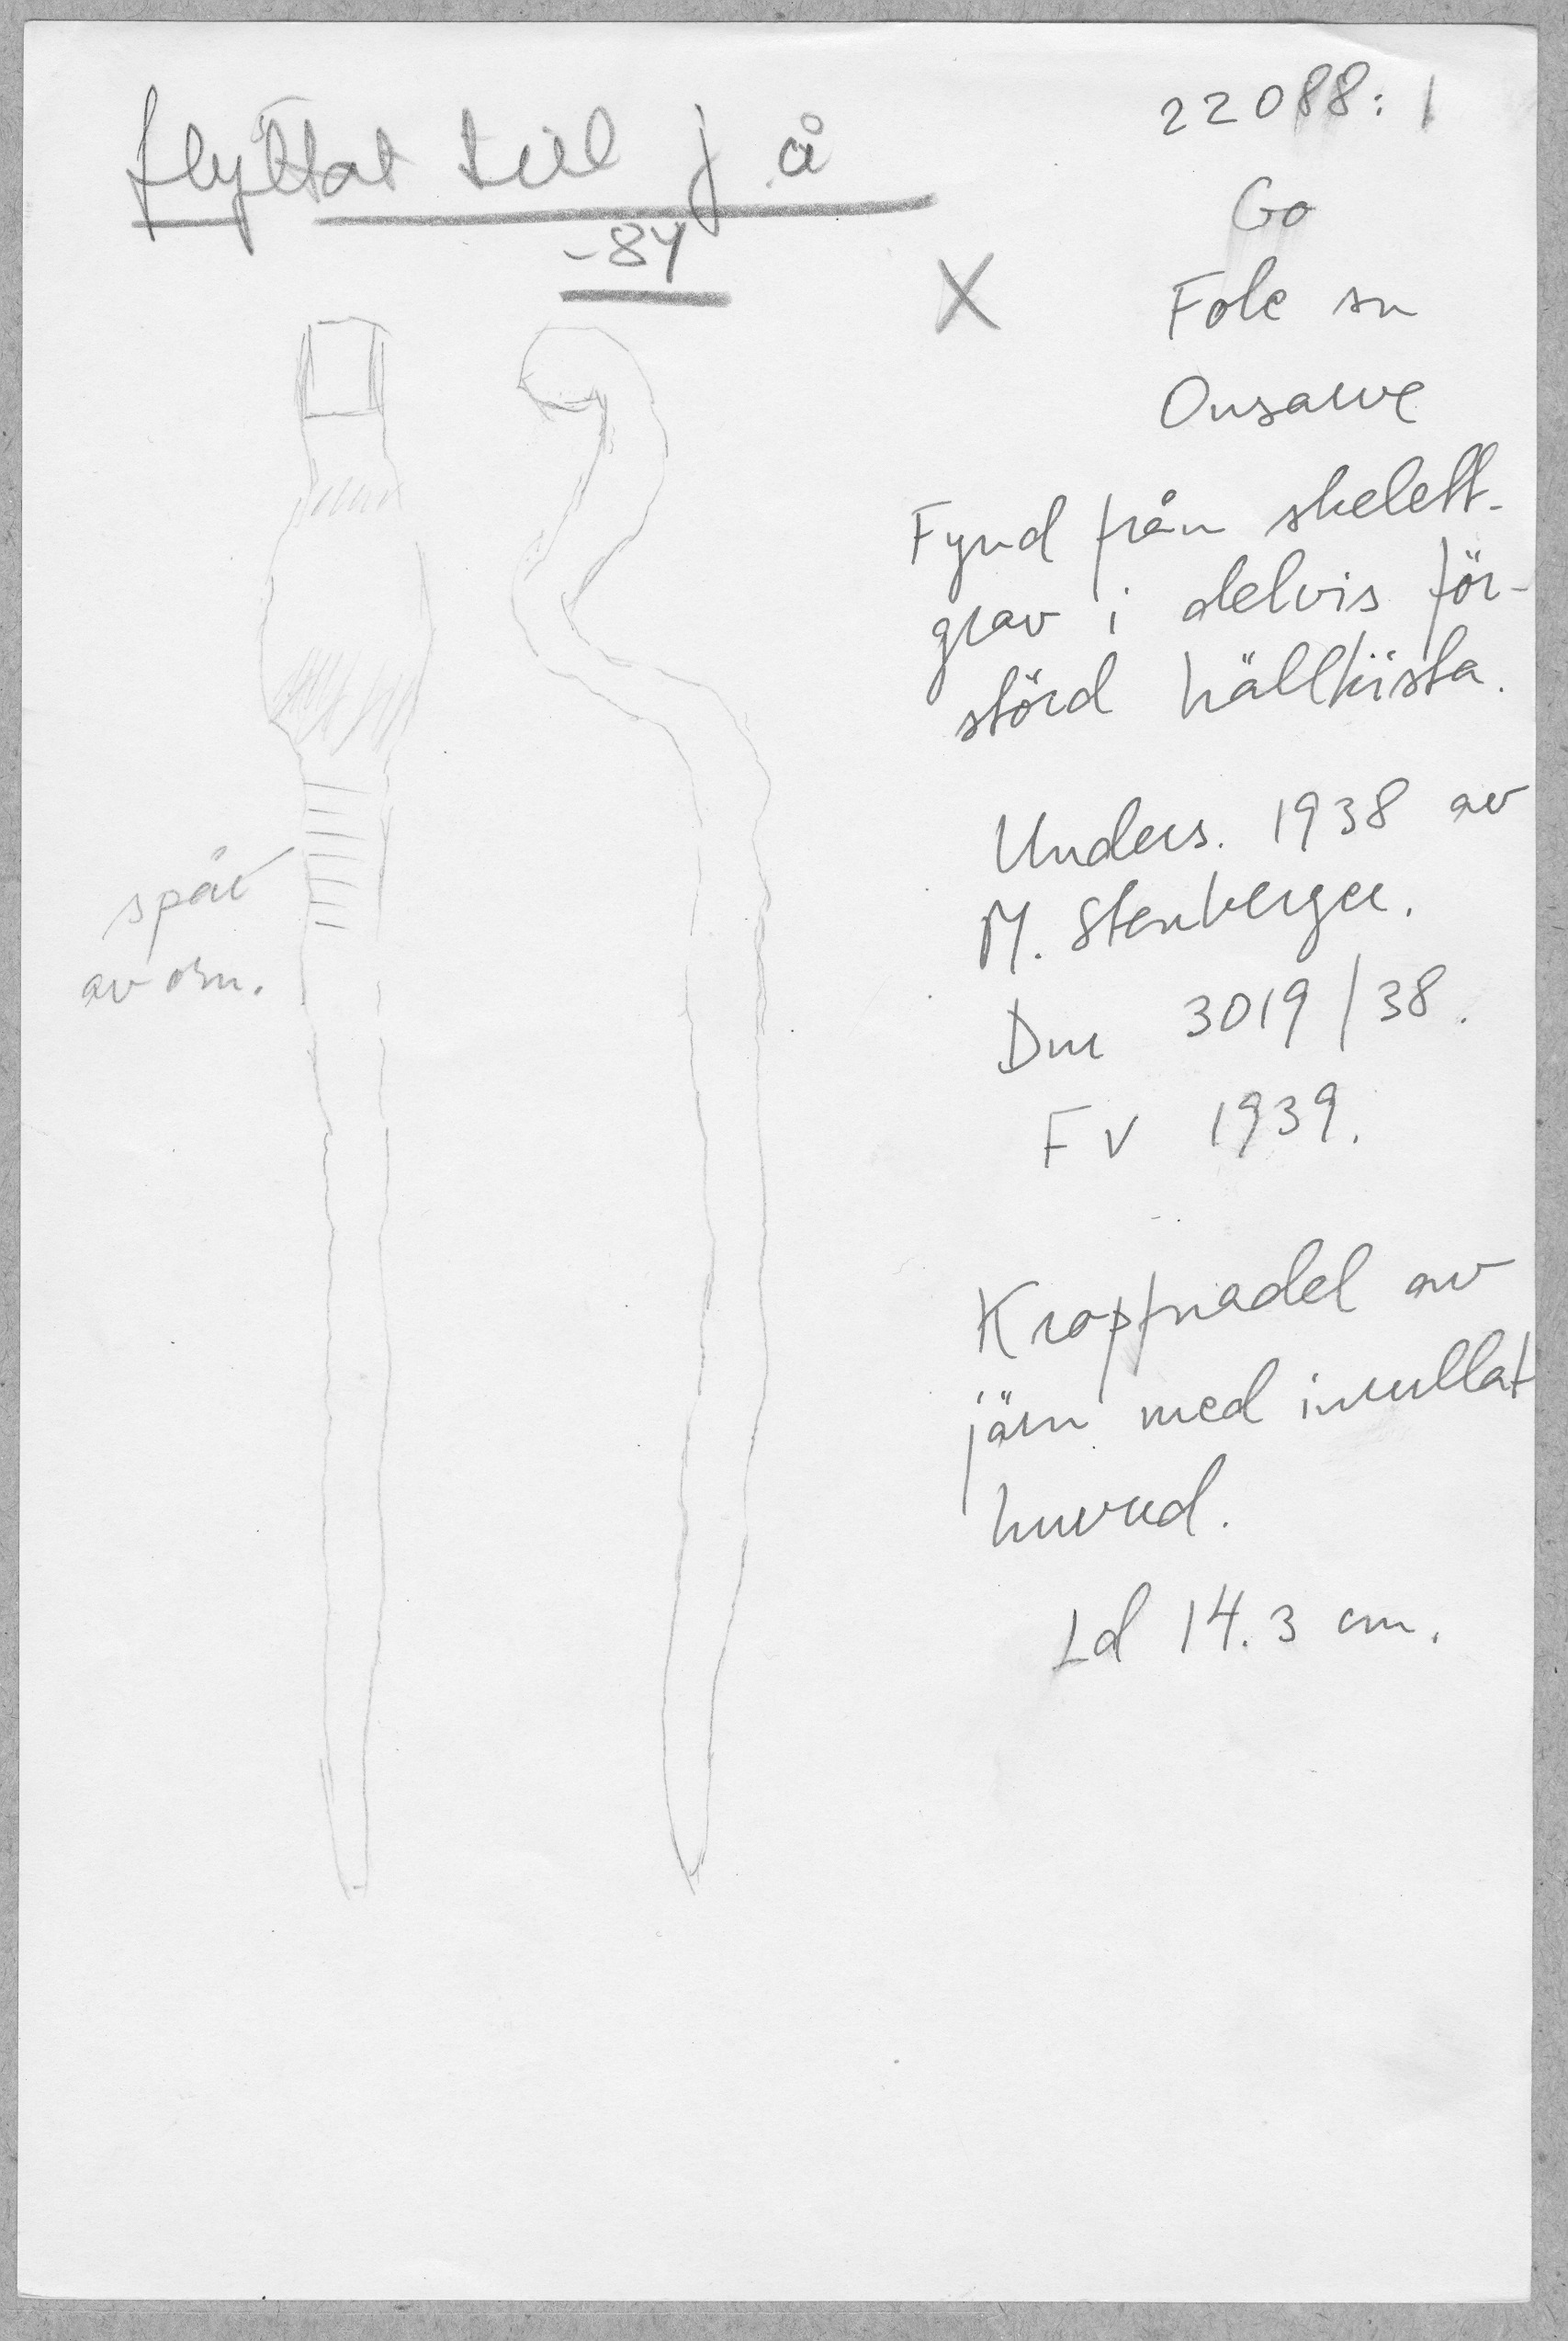 flyttat till j å
-84
22088:1
X
Go
Fole sn
Onsarve
Fynd från skelett-
grav i delvis för-
störd hällkista.
Unders. 1938 av
M. Stenberger.
Dnr 3019/38.
FV 1939.
Kropfnadel av
järn med inrullat
huvud.
Ld 14.3 cm.
spår
av orn.